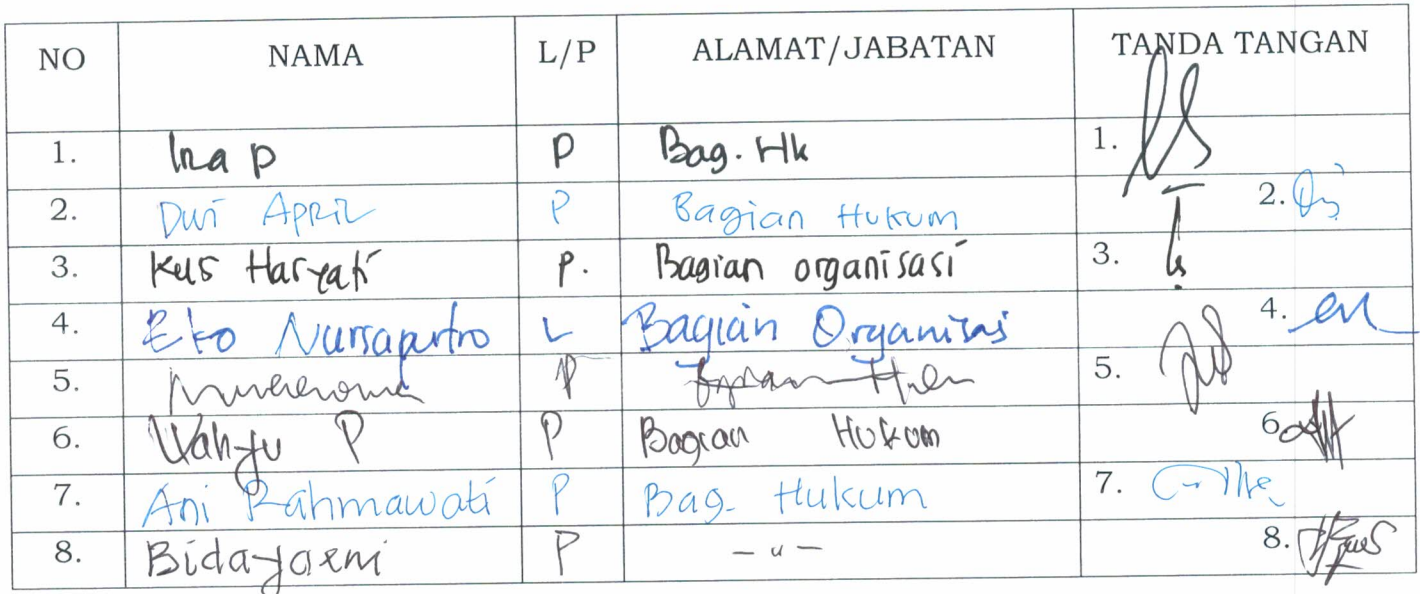 NO NAMA L/P ALAMAT/JABATAN TANDA TANGAN
1. Ina P P Bag. Hk 1.
2. Dwi April P Bagian Hukum 2.
3. Kus Haryati P. Bagian organisasi 3.
4. Eko Nursaputro L Bagian Organisasi 4.
5. P 5.
6. Wahyu P P Bagian Hukum 6.
7. Ani Rahmawati P Bag. Hukum 7.
8. Bidayaeni P - " - 8.